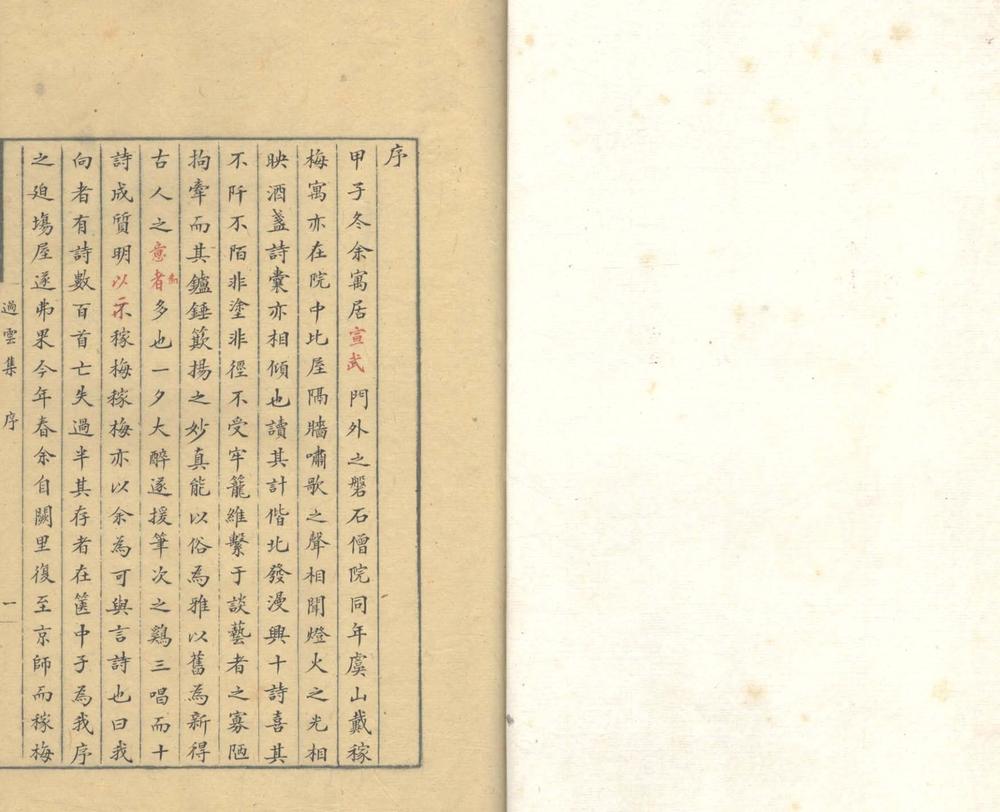 序
甲子冬余寓居宣武門外之磐石僧院同年虞山戴稼
梅寓亦在院中比屋隔牆嘯歌之聲相聞燈火之光相
映酒盞詩囊亦相傾也讀其計偕北發漫興十詩喜其
不阡不陌非塗非徑不受牢籠維繫于談藝者之寡陋
拘牽而其鑪錘簸揚之妙真能以俗為雅以舊為新得
古人之意者多也一夕大醉遂援筆次之鷄三唱而十
詩成質明以示稼梅稼梅亦以余為可與言詩也曰我
向者有詩數百首亡失過半其存者在篋中子為我序
之迫塲屋遂弗果今年春余自闕里復至京師而稼梅
過雲集 序 一